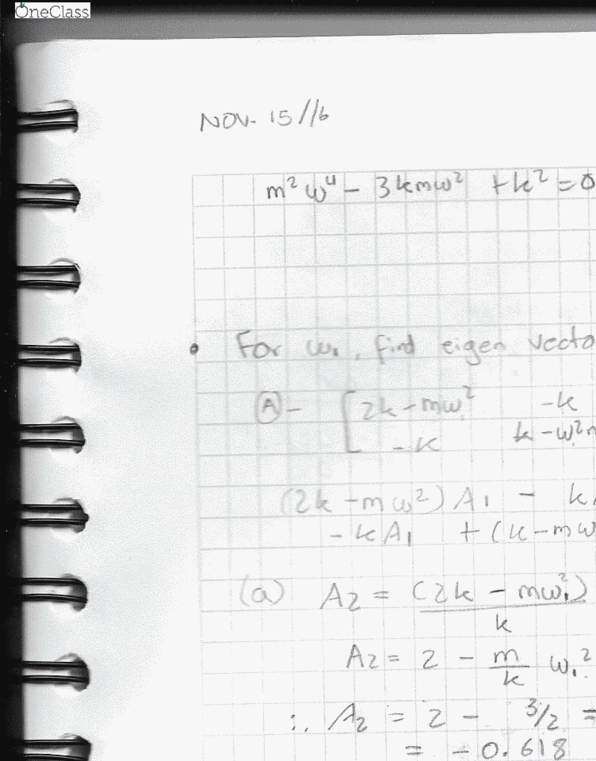 OneClass
NOV. 15//6
m² ω⁴ - 3kmω² + k² = 0
• For ω₁, find eigen vecto
Ⓐ - [2k - mω² -k
-k k - ω²m
(2k - mω²) A₁ - k
- kA₁ + (k - mω
(a) A₂ = (2k - mω₁²)
k
A₂ = 2 - m/k ω₁²
∴ A₂ = 2 - 3/2 =
= -0.618